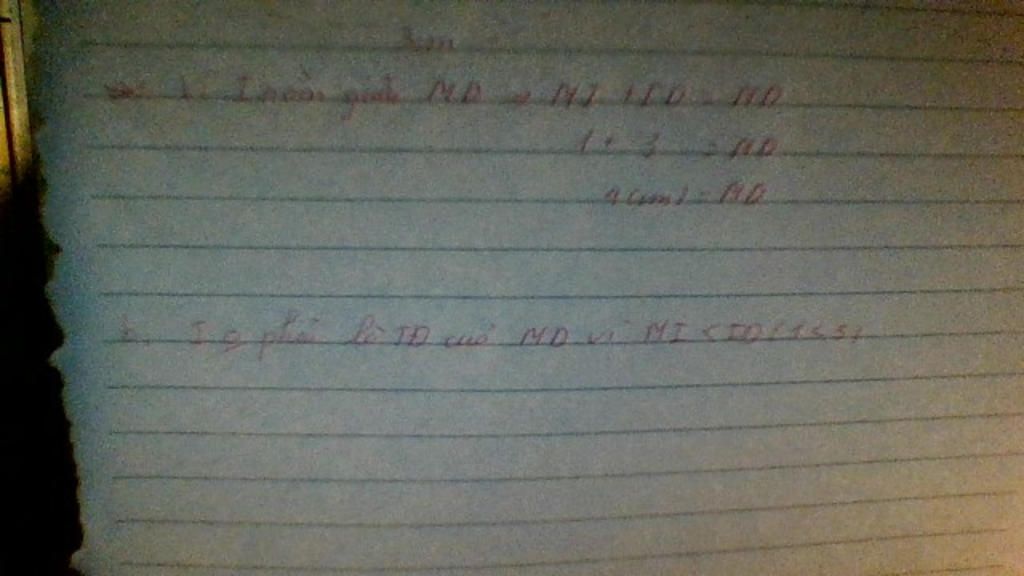 3cm
I nằm giữa MD → MI + ID = MD
1 + 3 = MD
4 (cm) = MD
b. I o phải là TĐ của MD vì MI < ID (1 < 3)